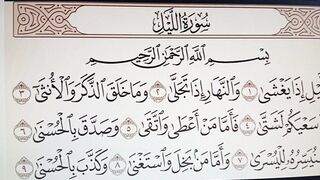 سُورَةُ اللَّيْلِ
بِسْمِ ٱللَّهِ ٱلرَّحْمَٰنِ ٱلرَّحِيمِ
إِذَا يَغْشَىٰ ١ وَٱلنَّهَارِ إِذَا تَجَلَّىٰ ٢ وَمَا خَلَقَ ٱلذَّكَرَ وَٱلْأُنثَىٰٓ ٣
سَعْيَكُمْ لَشَتَّىٰ ٤ فَأَمَّا مَنْ أَعْطَىٰ وَٱتَّقَىٰ ٥ وَصَدَّقَ بِٱلْحُسْنَىٰ ٦
نُيَسِّرُهُۥ لِلْيُسْرَىٰ ٧ وَأَمَّا مَنۢ بَخِلَ وَٱسْتَغْنَىٰ ٨ وَكَذَّبَ بِٱلْحُسْنَىٰ ٩